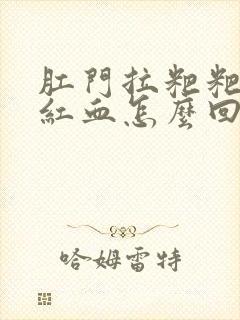 肛門拉粑粑
紅血怎麼回
哈姆雷特